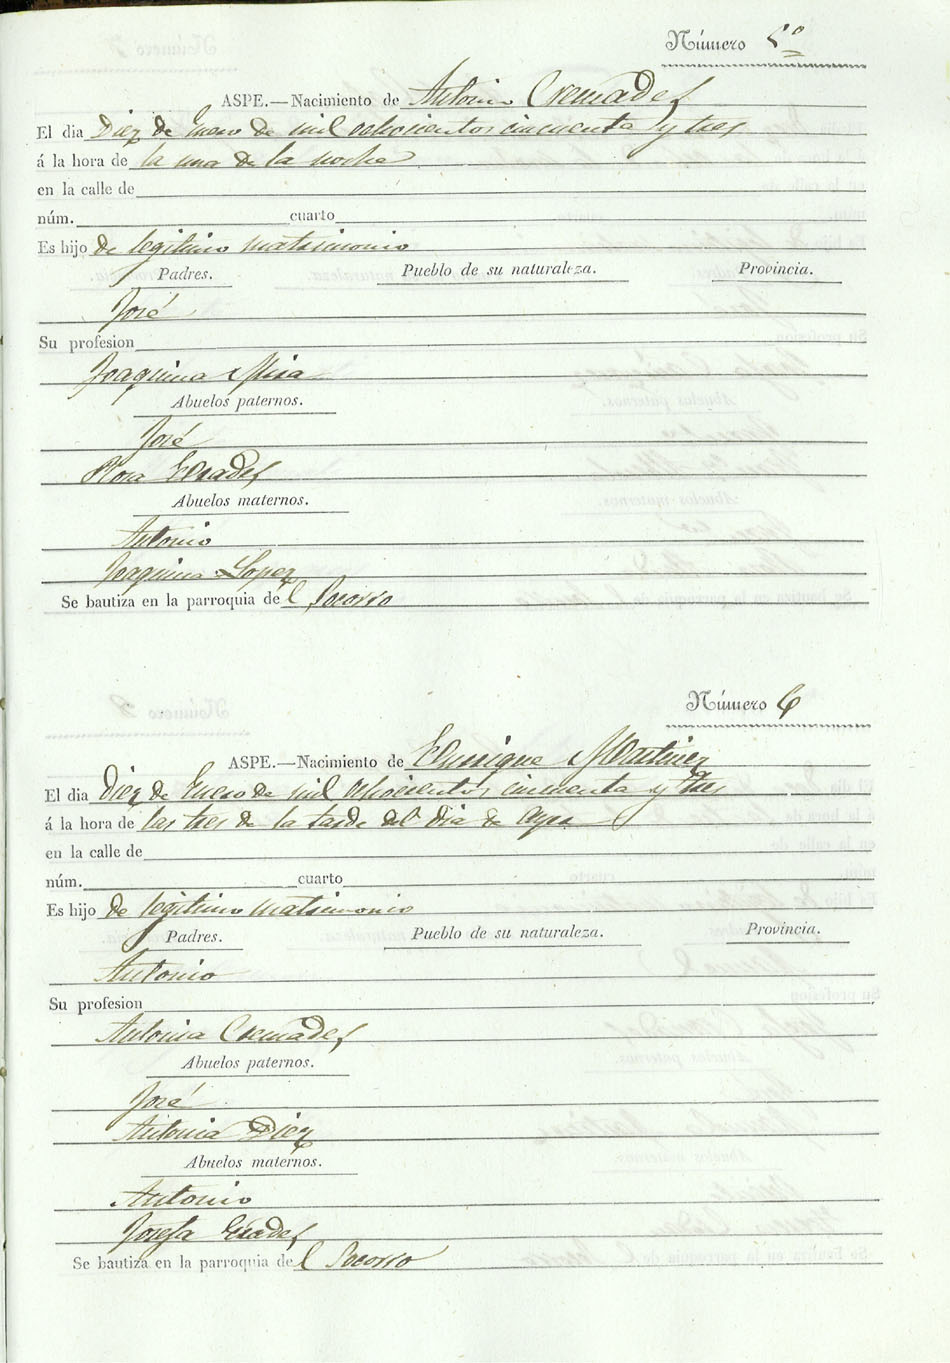 Número 5º
ASPE.—Nacimiento de Antonio Cremades
El dia Diez de Enero de mil ochocientos cincuenta y tres
á la hora de la una de la noche
en la calle de
núm. cuarto
Es hijo de legitimo matrimonio
Padres. Pueblo de su naturaleza. Provincia.
José
Su profesion
Joaquina Mira
Abuelos paternos.
José
Rosa Erades
Abuelos maternos.
Antonio
Joaquina Lopez
Se bautiza en la parroquia del Socorro
Número 6
ASPE.—Nacimiento de Enrrique Martinez
El dia Diez de Enero de mil ochocientos cincuenta y tres
á la hora de las tres de la tarde del dia de
en la calle de
núm. cuarto
Es hijo de legitimo matrimonio
Padres. Pueblo de su naturaleza. Provincia.
Antonio
Su profesion
Antonia Cremades
Abuelos paternos.
José
Antonia Diez
Abuelos maternos.
Antonio
Josefa Erades
Se bautiza en la parroquia del Socorro